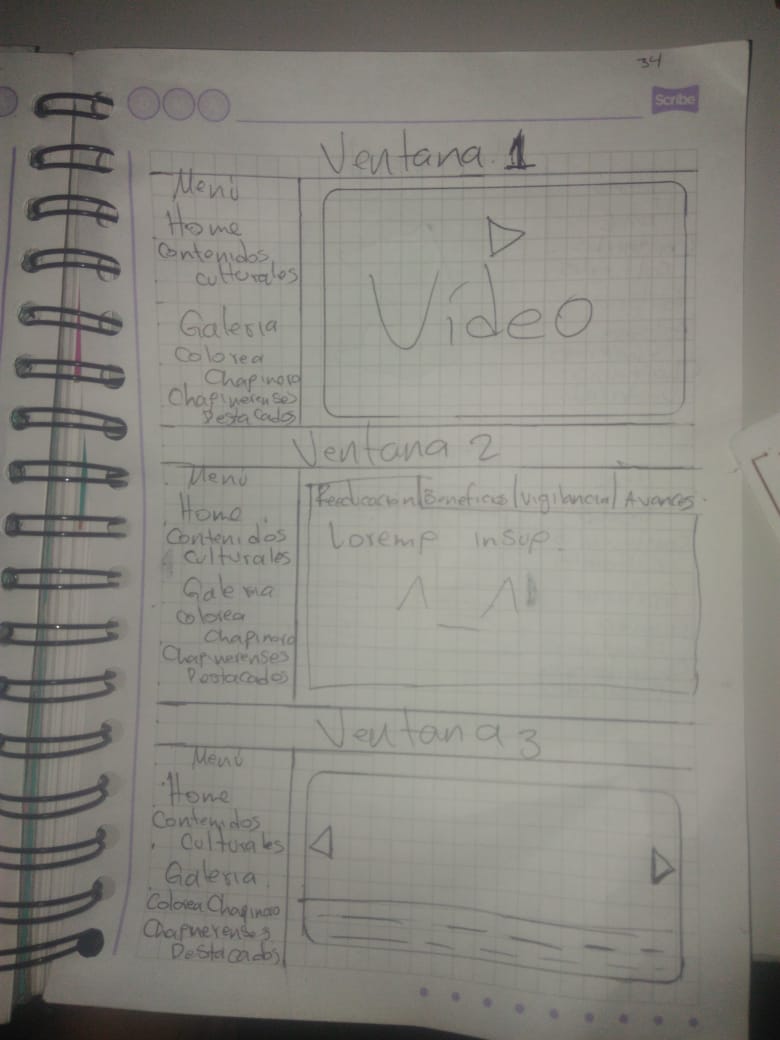 34
Scribe
Ventana 1
Menú
Home
Contenidos
culturales
Galeria
Colorea
Chapinero
Chapinerenses
Destacados
Video
Ventana 2
Menú
Home
Contenidos
culturales
Galeria
Colorea
Chapinero
Chapinerenses
Destacados
Reeducación|Beneficios|Vigilancia|Avances.
Loremp insup.
^_^
Ventana 3
Menú
Home
Contenidos
Culturales
Galeria
Colorea Chapinero
Chapinerenses
Destacados